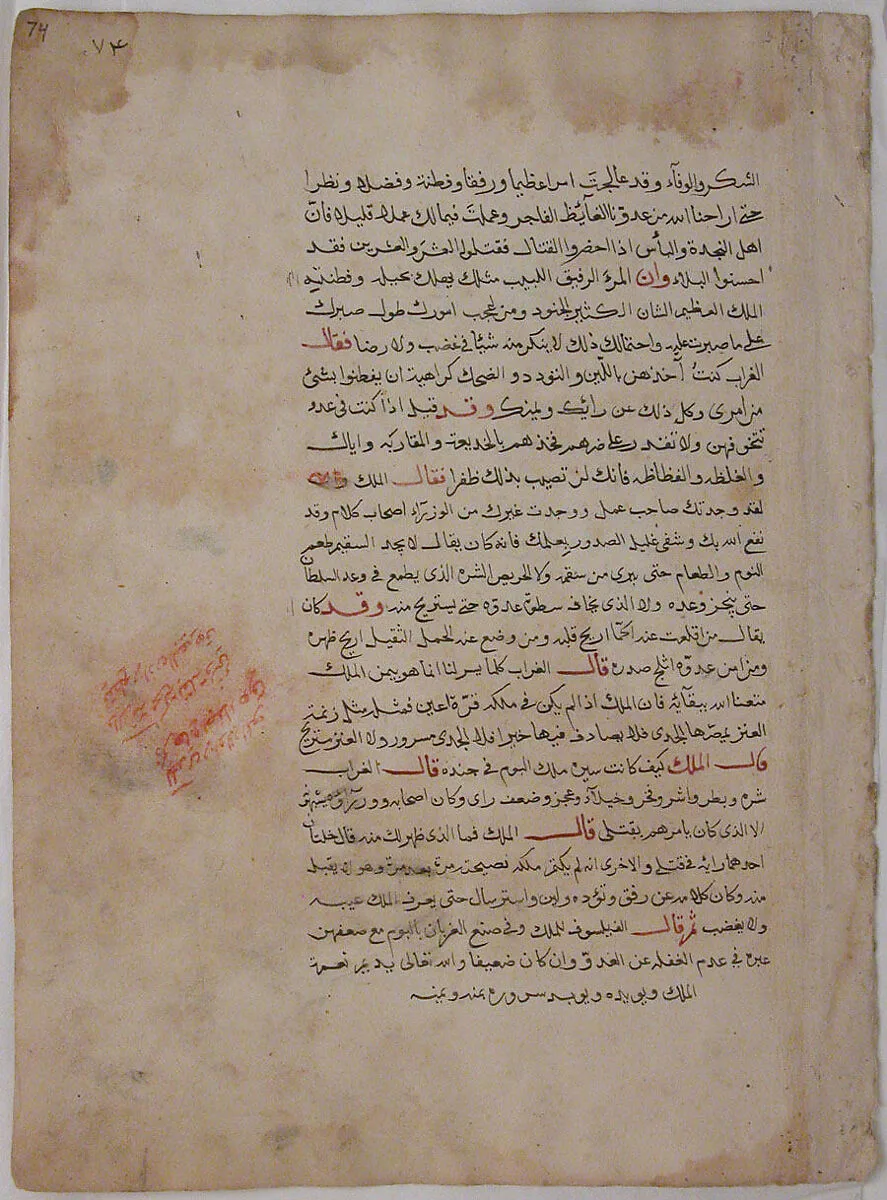 74
٧٤
الشكر والوفآء وقد عالجت امرا عظيما ورفقا وفطنة وفضلا ونظرا
حتى اراحنا الله من عدونا الغآئظ الفاجر وعملت فيما لك عملا قليلا فانّ
اهل النجدة والبأس اذا احضروا القتال فقتلوا العشر والعشرين فقد
احسنوا البلاء وان المرء الرفيق اللبيب مثلك يهلك بحيله وفطنته
الملك العظيم الشان الكثير الجنود ومن اعجب امورك طول صبرك
على ما صبرت عليه واحتمالك ذلك لا ينكر منه شيئا في غضب ولا رضا فقال
الغراب كنت آخذهن باللّين والتودد والضحك كراهية ان يفطنوا بشئ
من امرى وكل ذلك عن رائك ويمنك وقد قيل اذا كنت فى عدو
تتخوفهن ولا تقدر على ضرهم فخذهم بالخديعة والمقاربه واياك
والغلظه والفظاظه فانك لن تصيب بذلك ظفرا فقال الملك
لقد وجدتك صاحب عمل ووجدت غيرك من الوزرآء اصحاب كلام وقد
نفع الله بك وشفى غليل الصدور بعلمك فانه كان يقال لا يجد السقيم طعم
النوم والطعام حتى يبرى من سقمه ولا الحريص الشره الذى يطمع فى وعد السلطان
حتى ينجز وعده ولا الذى يخاف سطوة عدوه حتى يستريح منه وقد كان
يقال من اقلعت عنه الحمّا اريح قلبه ومن وضع عنه الحمل الثقيل اريح ظهره
ومن امن عدوّه اثلج صدره قال الغراب كلما يسر لنا انما هو بيمن الملك
متعنا الله ببقآئه فان الملك اذا لم يكن فى ملكه قرّة اعين فمثله مثل زنمة
العنز يمصّها الجدى فلا يصادف فيها خيرا فلا الجدى مسرور ولا العنز مستريح
قال الملك كيف كانت سيره ملك البوم فى جنده قال الغراب
شره وبطر واشر وفخر وخيلآء وعجز وضعف راى وكان اصحابه ووزرآؤه
الا الذى كان يامرهم بقتلى قال الملك فما الذى ظهر لك منه قال خلتان
احدهما رايه فى قتلى والاخرى انه لم يكتم ملكه نصيحته مرة بعد مرة وهو لا يقبل
منه وكان كلامه عن رفق وتؤده ولين واسترسال حتى يعرف الملك عيبه
ولا يغضب ثم قال الفيلسوف للملك وفى صنع الغربان بالبوم مع ضعفهن
عبره فى عدم الغفله عن العدوّ وان كان ضعيفا والله تعالى يديم نعمة
الملك ويويده ويوبد سروره بمنه ويمنه